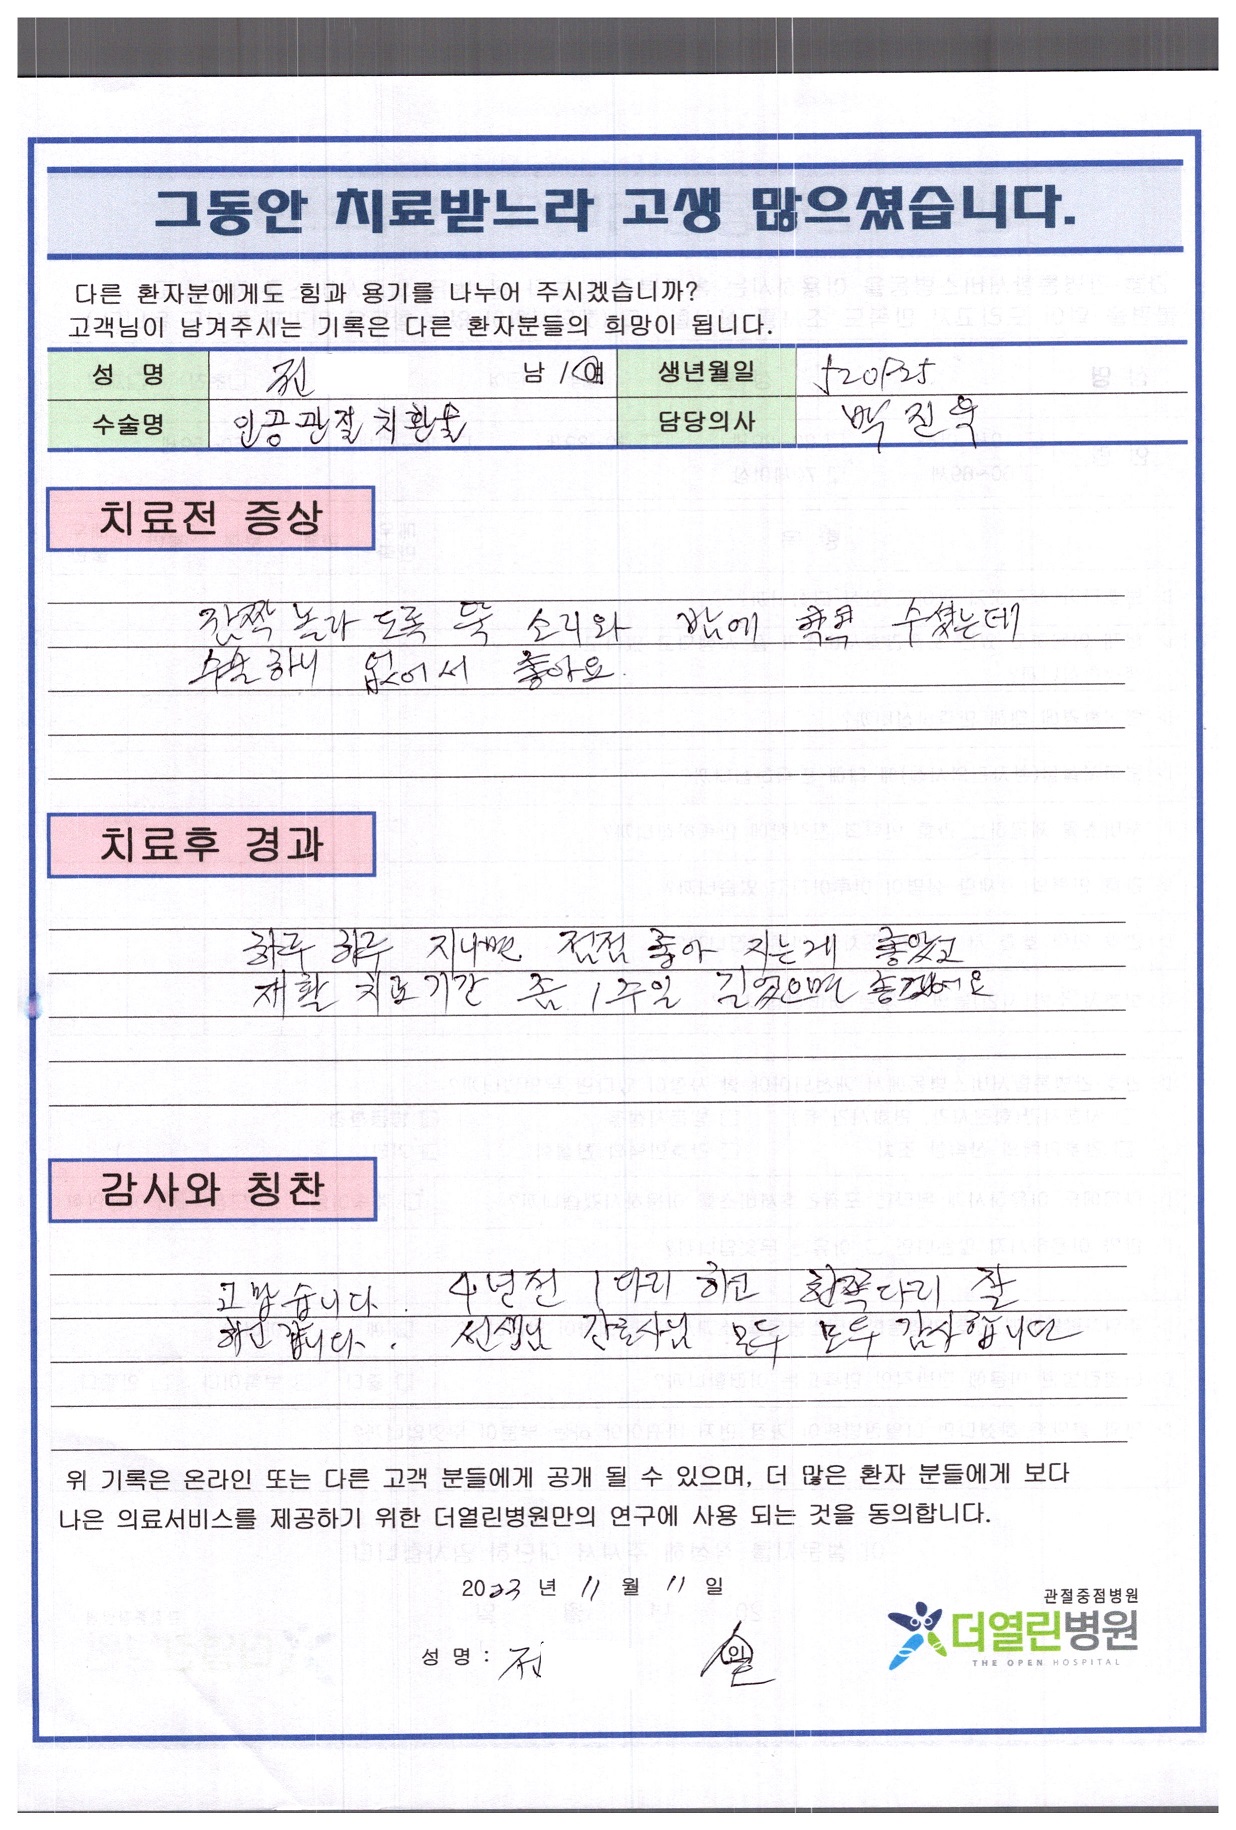 그동안 치료받느라 고생 많으셨습니다.
다른 환자분에게도 힘과 용기를 나누어 주시겠습니까?
고객님이 남겨주시는 기록은 다른 환자분들의 희망이 됩니다.
성 명 전 남 / 여 생년월일 520525
수술명 인공관절치환술 담당의사 박진욱
치료전 증상
깜짝 놀라 도록 뚝 소리와 밤에 콱콱 수셨는데
수술하니 없어서 좋아요.
치료후 경과
하루 하루 지나면 점점 좋아 지는게 좋았고
재활 치료기간 좀 1주일 길었으면 좋겠어요
감사와 칭찬
고맙습니다. 4년전 1다리 하고 한쪽다리 잘
하고 갑니다. 선생님 간호사님 모두 모두 감사합니다
위 기록은 온라인 또는 다른 고객 분들에게 공개 될 수 있으며, 더 많은 환자 분들에게 보다
나은 의료서비스를 제공하기 위한 더열린병원만의 연구에 사용 되는 것을 동의합니다.
2023 년 11 월 11 일
성 명 : 전 인
관절중점병원
더열린병원
THE OPEN HOSPITAL